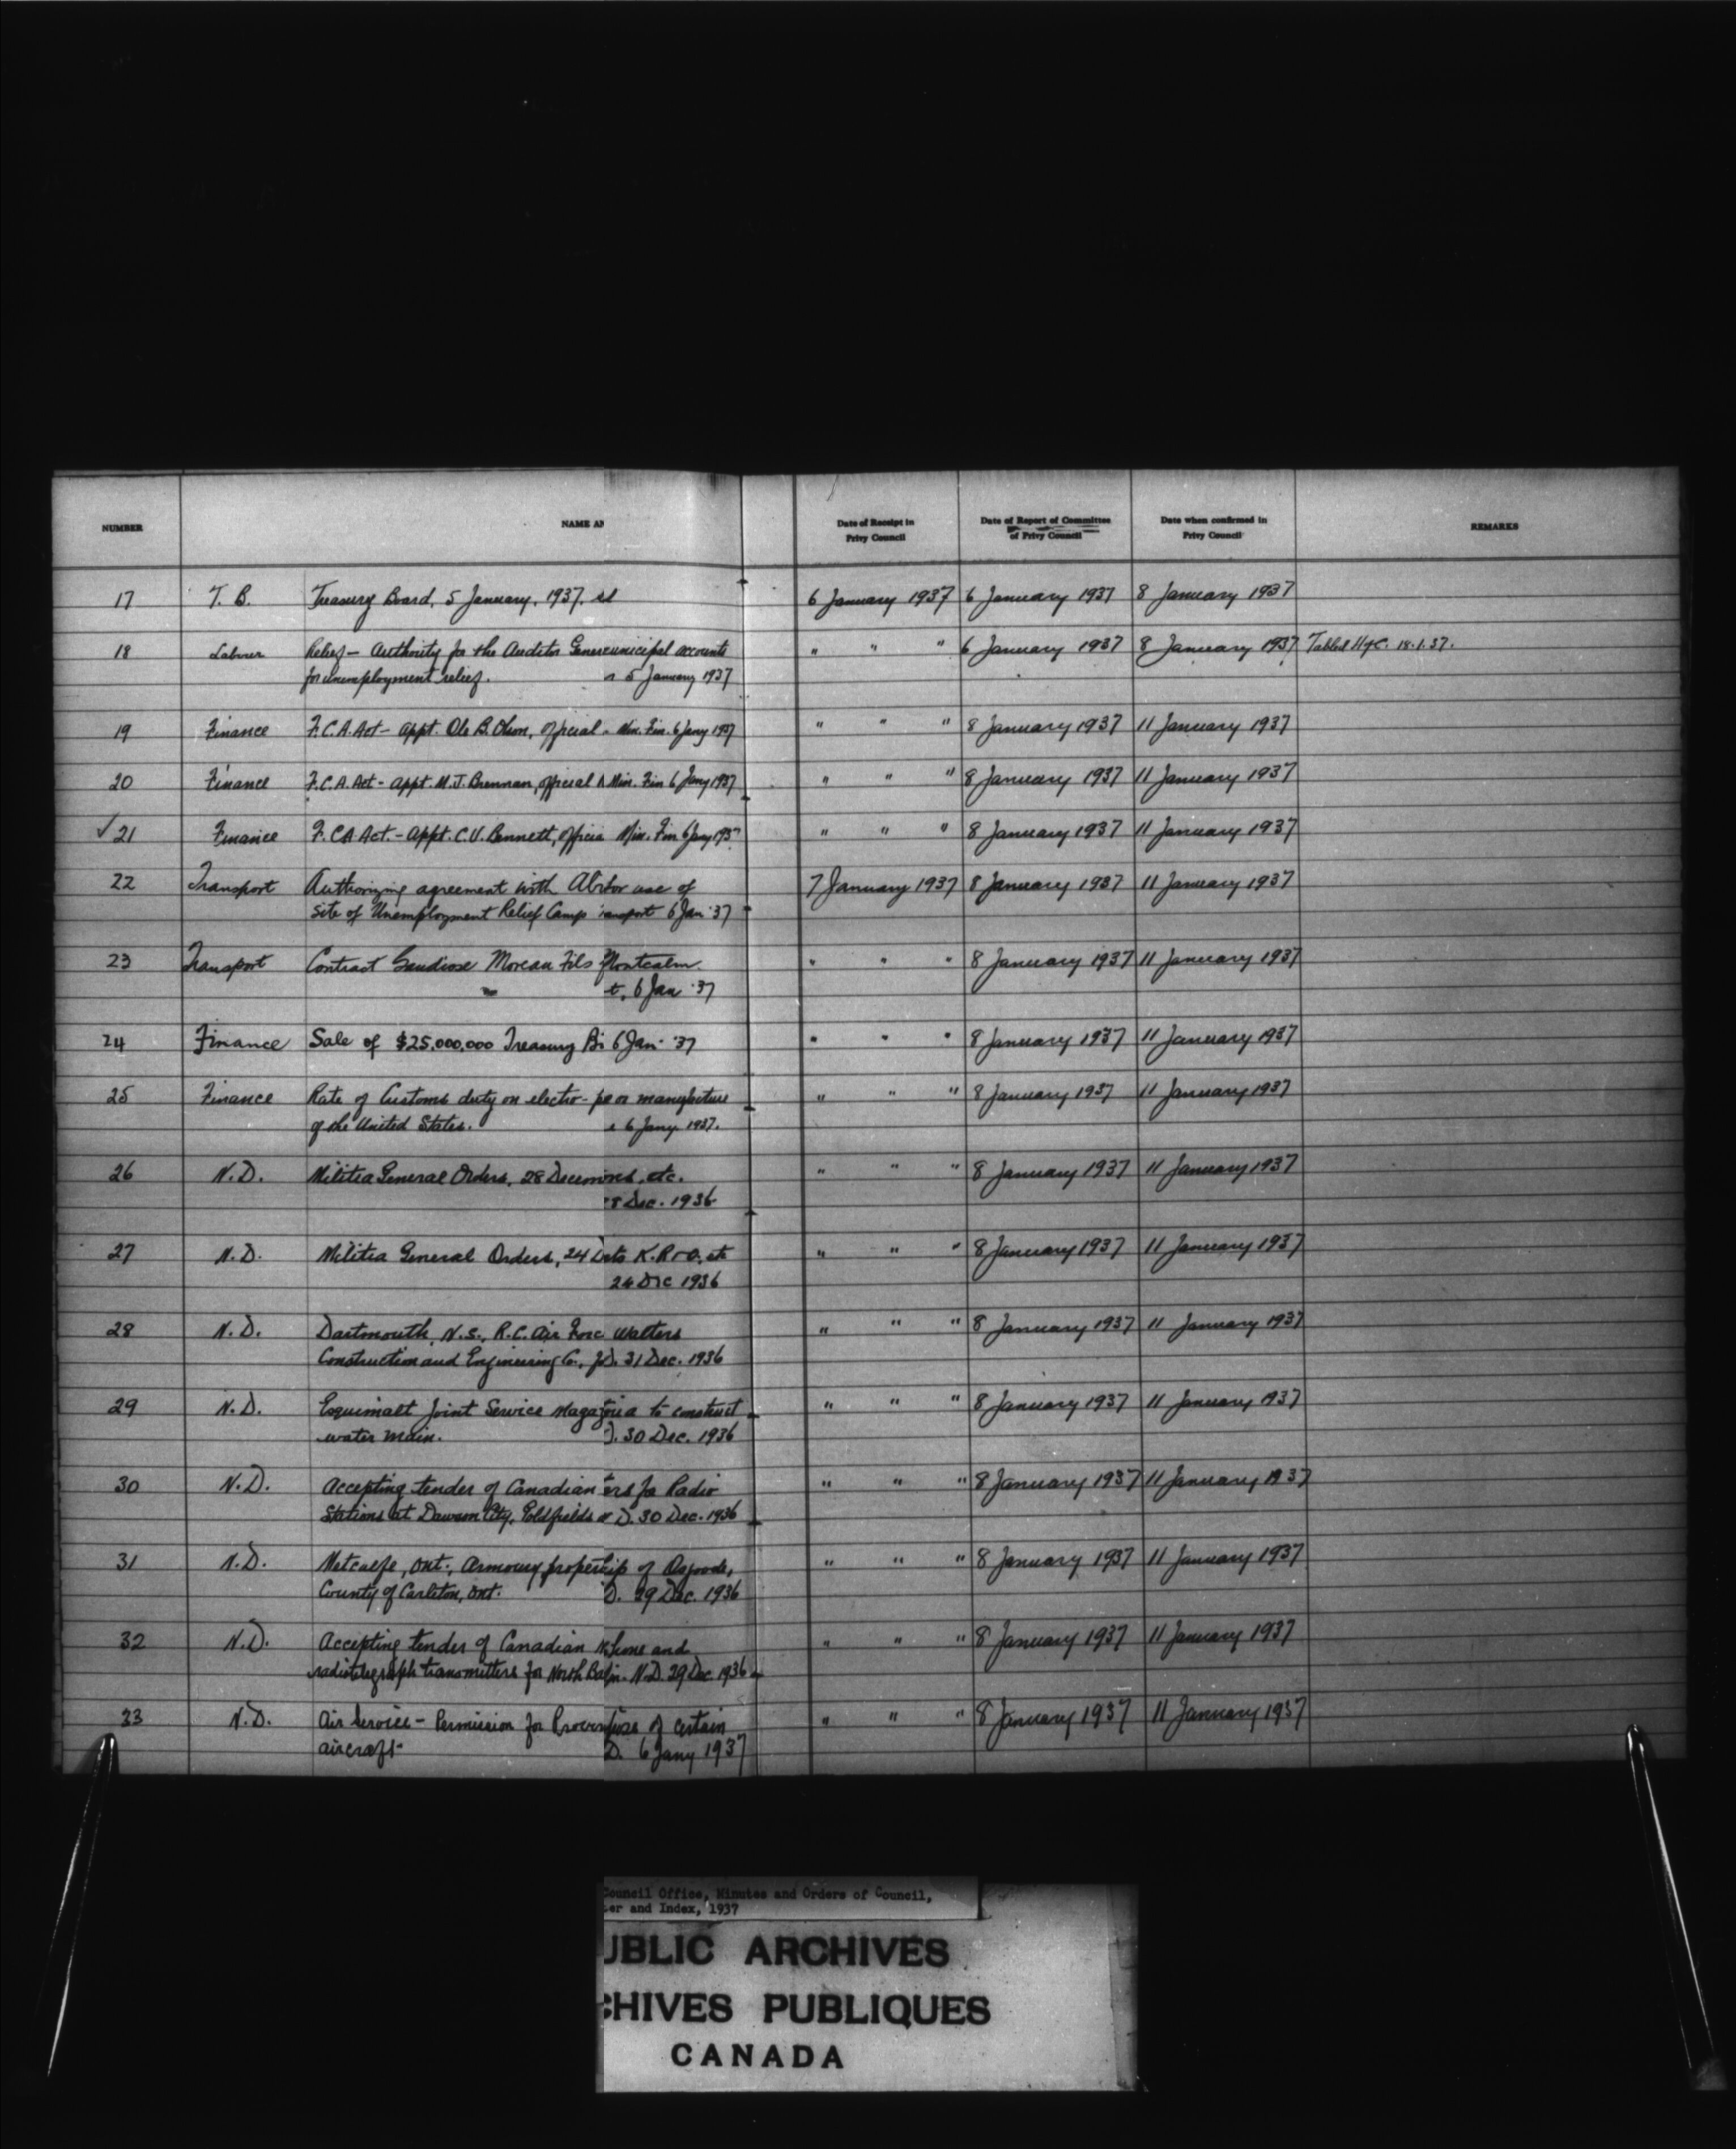 NUMBER NAME AN Date of Receipt in Privy Council Date of Report of Committee of Privy Council Date when confirmed in Privy Council REMARKS
17 T. B. Treasury Board, 5 January, 1937, 6 January 1937 6 January 1937 8 January 1937
18 Labour Relief - Authority for the Auditor Gene municipal accounts " " " 6 January 1937 8 January 1937 Tabled H of C. 18.1.37.
for unemployment relief. 5 January 1937
19 Finance F.C.A. Act - Appt. Ole B. Olson, Official Min. Fin. 6 Jany 1937 " " " 8 January 1937 11 January 1937
20 Finance F.C.A. Act - Appt. M.J. Brennan, Official Min. Fin 6 Jany 1937 " " " 8 January 1937 11 January 1937
✓21 Finance F.C.A. Act. - Appt. C.V. Bennett, Officia Min. Fin 6 Jany 193 " " " 8 January 1937 11 January 1937
22 Transport Authorizing agreement with Abi for use of 7 January 1937 8 January 1937 11 January 1937
site of Unemployment Relief Camp ransport 6 Jan '37
23 Transport Contract Gaudiose Moreau Fils Montcalm. " " " 8 January 1937 11 January 1937
t, 6 Jan '37
24 Finance Sale of $25,000,000 Treasury Bi 6 Jan '37 " " " 8 January 1937 11 January 1937
25 Finance Rate of Customs duty on electro- or manufacture " " " 8 January 1937 11 January 1937
of the United States. 6 Jany. 1937.
26 N.D. Militia General Orders, 28 Decem etc. " " " 8 January 1937 11 January 1937
8 Dec. 1936
27 N.D. Militia General Orders, 24 D to K.R. & O. etc " " " 8 January 1937 11 January 1937
24 Dec 1936
28 N.D. Dartmouth, N.S., R.C. Air Forc Walters " " " 8 January 1937 11 January 1937
Construction and Engineering Co., D. 31 Dec. 1936
29 N.D. Esquimalt Joint Service Maga oria to construct " " " 8 January 1937 11 January 1937
water main. D. 30 Dec. 1936
30 N.D. Accepting tender of Canadian ers for Radio " " " 8 January 1937 11 January 1937
Stations at Dawson City, Goldfields D. 30 Dec. 1936
31 N.D. Metcalfe, Ont., Armoury proper ip of Osgoode, " " " 8 January 1937 11 January 1937
County of Carleton, Ont. D. 29 Dec. 1936
32 N.D. Accepting tender of Canadian and " " " 8 January 1937 11 January 1937
radiotelegraph transmitters for North Ba N.D. 29 Dec. 1936
33 N.D. Air Service - Permission for of certain " " " 8 January 1937 11 January 1937
aircraft. D. 6 Jany 1937
Council Office, Minutes and Orders of Council,
er and Index, 1937
UBLIC ARCHIVES
CHIVES PUBLIQUES
CANADA